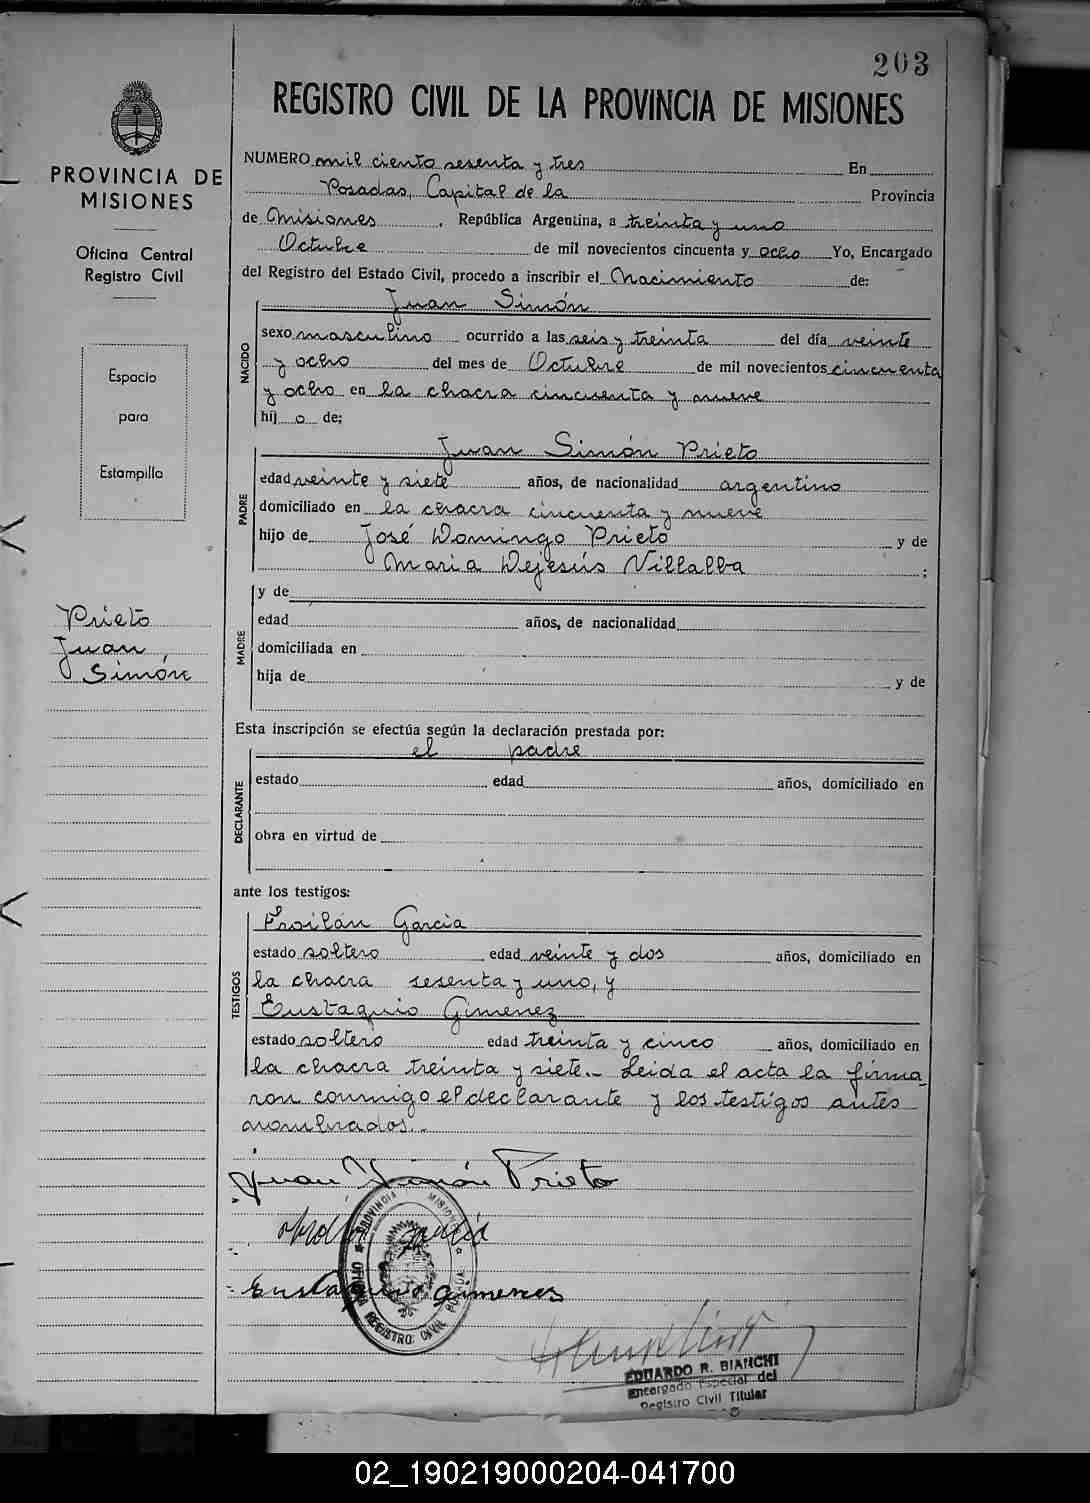 203
REGISTRO CIVIL DE LA PROVINCIA DE MISIONES
PROVINCIA DE
MISIONES
Oficina Central
Registro Civil
Espacio
para
Estampilla
Prieto
Juan
Simón
NUMERO mil ciento sesenta y tres En
Posadas, Capital de la Provincia
de Misiones, República Argentina, a treinta y uno
Octubre de mil novecientos cincuenta y ocho Yo, Encargado
del Registro del Estado Civil, procedo a inscribir el Nacimiento de:
NACIDO
Juan Simón
sexo masculino ocurrido a las seis y treinta del día veinte
y ocho del mes de Octubre de mil novecientos cincuenta
y ocho en la chacra cincuenta y nueve
hij o de;
PADRE
Juan Simón Prieto
edad veinte y siete años, de nacionalidad argentino
domiciliado en la chacra cincuenta y nueve
hijo de José Domingo Prieto y de
Maria Dejesús Villalba ;
MADRE
y de
edad años, de nacionalidad
domiciliada en
hija de y de
Esta inscripción se efectúa según la declaración prestada por:
DECLARANTE
el padre
estado edad años, domiciliado en
obra en virtud de
ante los testigos:
TESTIGOS
Froilán Garcia
estado soltero edad veinte y dos años, domiciliado en
la chacra sesenta y uno, y
Eustaquio Gimenez
estado soltero edad treinta y cinco años, domiciliado en
la chacra treinta y siete.- Leida el acta la firma
ron conmigo el declarante y los testigos antes
nombrados.-
Juan Simón Prieto
Eustaquio Gimenes
PROVINCIA MISIONES
OFICINA REGISTRO CIVIL
EDUARDO R. BIANCHI
Encargado Especial del
Registro Civil Titular
02_190219000204-041700